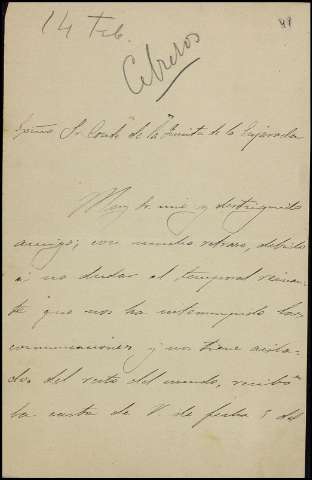 14 Feb.
Cebreros
Sr. Conde de la Quinta de la Enjarada
Muy Sr. mio y distinguido
amigo; con mucho retraso, debido
a no dudar al temporal reinan-
te que nos ha interrumpido las
comunicaciones y nos tiene aisla-
dos del resto del mundo, recibo
la carta de V. de fecha 5 del